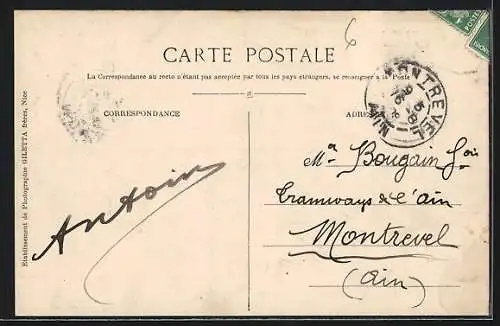 CARTE POSTALE
La Correspondance au recto n'étant pas acceptée par tous les pays étrangers, se renseigner à la Poste
CORRESPONDANCE
ADRESSE
MONTREVEL
AIN
6
Antoin
Mr Bougain
Tramways de l'ain
Montrevel
(Ain)
Etablissement de Photographie GILETTA frères, Nice